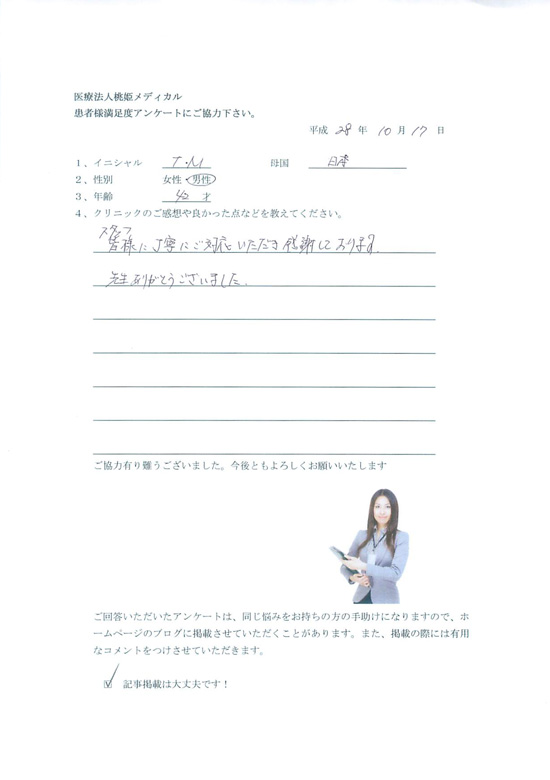 医療法人桃姫メディカル
患者様満足度アンケートにご協力下さい。
平成 28 年 10 月 17 日
1、イニシャル T.M 母国 日本
2、性別 女性・男性
3、年齢 42 才
4、クリニックのご感想や良かった点などを教えてください。
スタッフ
皆様に丁寧にご対応いただき感謝しております。
先生ありがとうございました。
ご協力有り難うございました。今後ともよろしくお願いいたします
ご回答いただいたアンケートは、同じ悩みをお持ちの方の手助けになりますので、ホ
ームページのブログに掲載させていただくことがあります。また、掲載の際には有用
なコメントをつけさせていただきます。
☑ 記事掲載は大丈夫です！